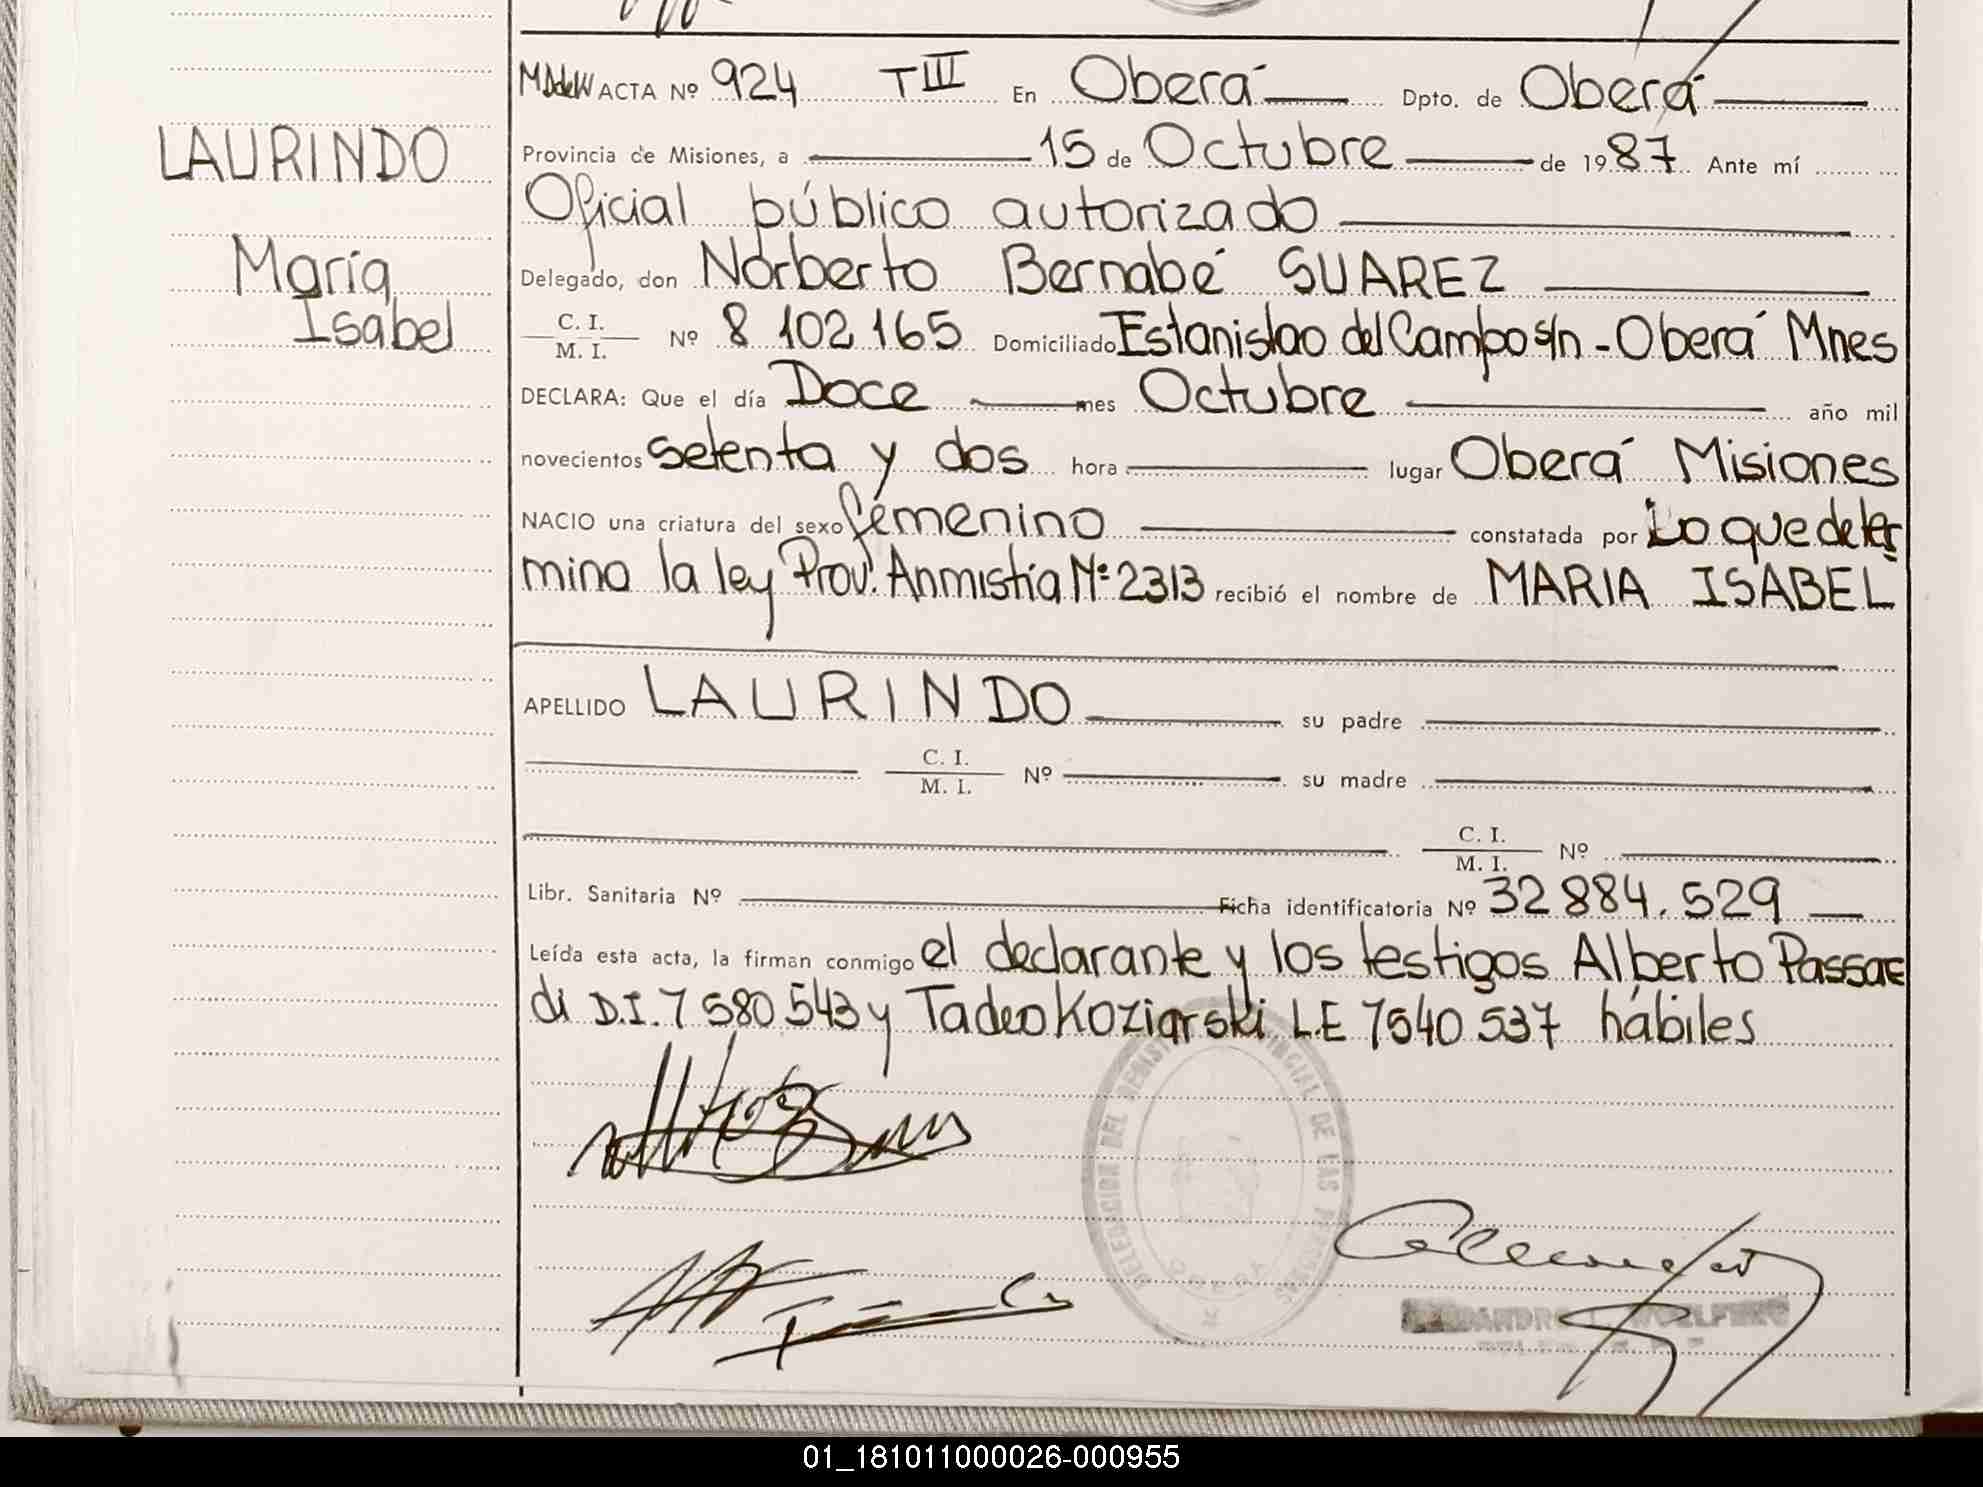 ACTA Nº 924 TIII En Oberá Dpto. de Oberá
LAURINDO
Provincia de Misiones, a 15 de Octubre de 1987 Ante mí
Oficial público autorizado
María
Delegado, don Norberto Bernabé SUAREZ
Isabel
C. I.
M. I. Nº 8 102 165 Domiciliado Estanislao del Campo s/n - Oberá Mnes
DECLARA: Que el día Doce mes Octubre año mil
novecientos setenta y dos hora lugar Oberá Misiones
NACIO una criatura del sexo femenino constatada por Lo que deter
mina la ley Prov. Anmistía Nº 2313 recibió el nombre de MARIA ISABEL
APELLIDO LAURINDO su padre
C. I.
M. I. Nº su madre
C. I.
M. I. Nº
Libr. Sanitaria Nº Ficha identificatoria Nº 32 884.529
Leída esta acta, la firman conmigo el declarante y los testigos Alberto Passare
di D.I. 7 580 543 y Tadeo Koziarski L.E 7540 537 hábiles
DELEGACION DEL REGISTRO PROVINCIAL DE LAS PERSONAS
OBERA
01_181011000026-000955